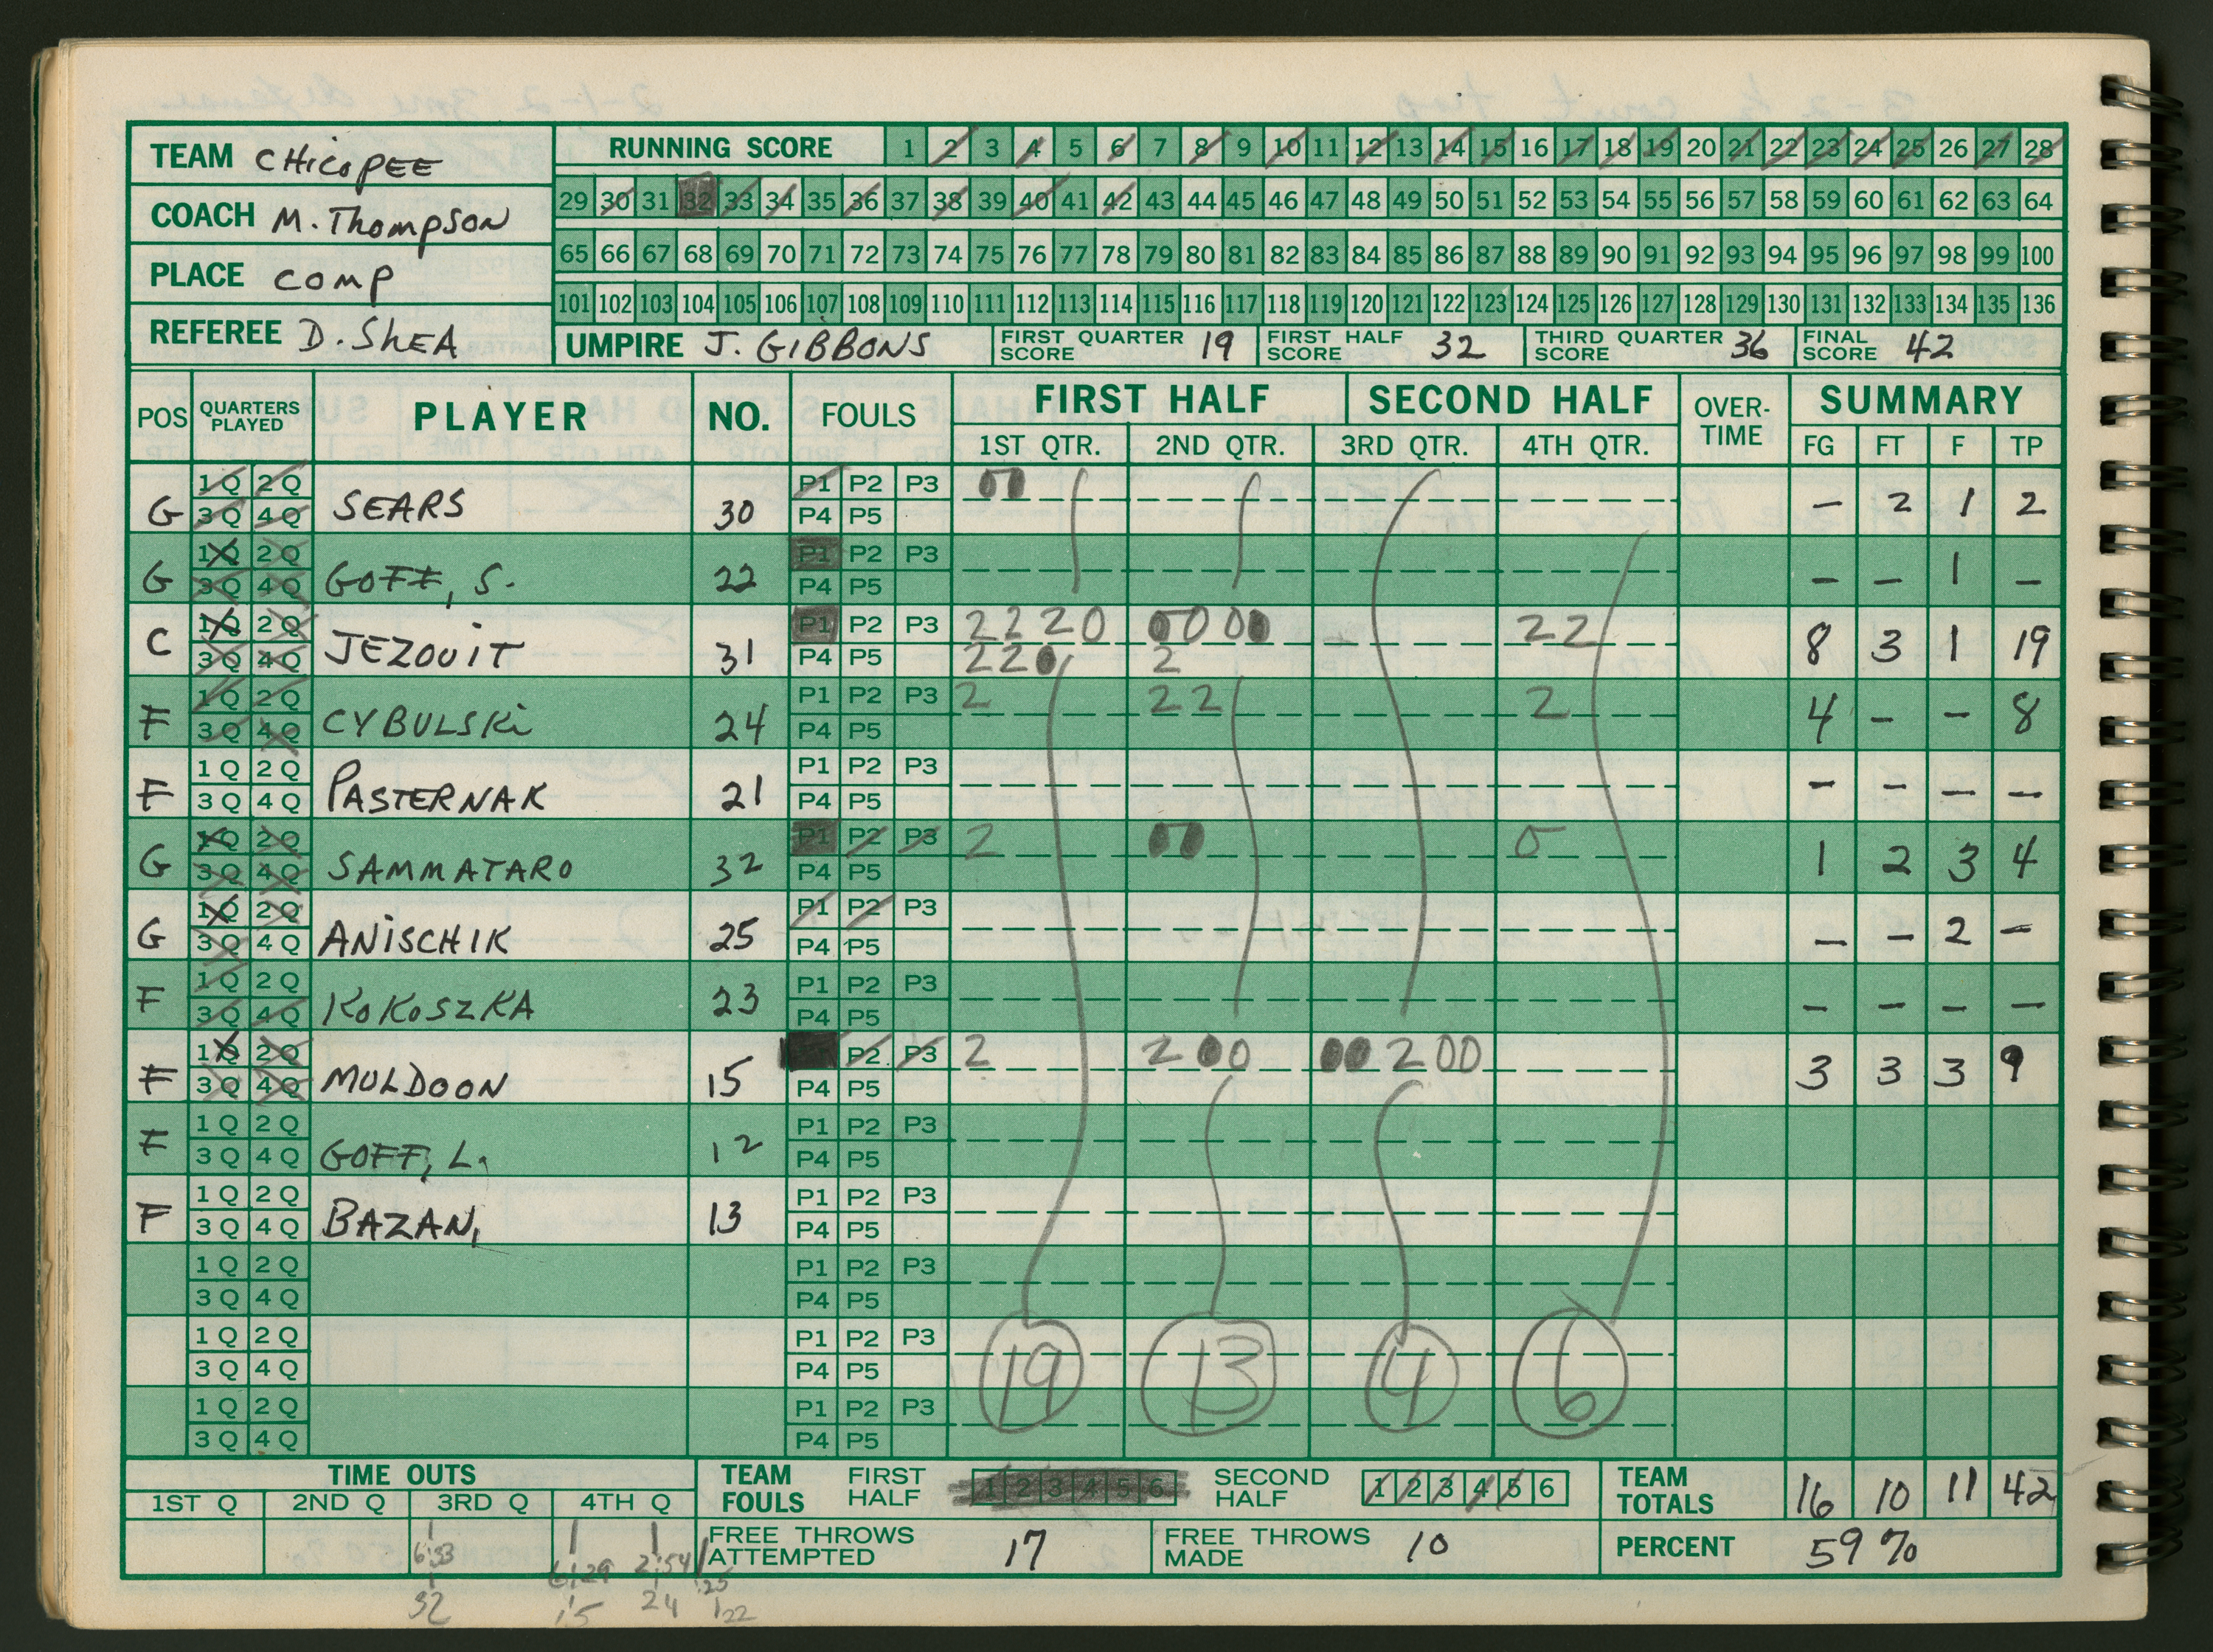 TEAM CHICOPEE
COACH M. Thompson
PLACE COMP
REFEREE D. SHEA
RUNNING SCORE 1 2 3 4 5 6 7 8 9 10 11 12 13 14 15 16 17 18 19 20 21 22 23 24 25 26 27 28
29 30 31 32 33 34 35 36 37 38 39 40 41 42 43 44 45 46 47 48 49 50 51 52 53 54 55 56 57 58 59 60 61 62 63 64
65 66 67 68 69 70 71 72 73 74 75 76 77 78 79 80 81 82 83 84 85 86 87 88 89 90 91 92 93 94 95 96 97 98 99 100
101 102 103 104 105 106 107 108 109 110 111 112 113 114 115 116 117 118 119 120 121 122 123 124 125 126 127 128 129 130 131 132 133 134 135 136
UMPIRE J. GIBBONS FIRST QUARTER SCORE 19 FIRST HALF SCORE 32 THIRD QUARTER SCORE 36 FINAL SCORE 42
POS QUARTERS PLAYED PLAYER NO. FOULS FIRST HALF SECOND HALF OVER-TIME SUMMARY
1ST QTR. 2ND QTR. 3RD QTR. 4TH QTR. FG FT F TP
1Q 2Q P1 P2 P3 00
G 3Q 4Q SEARS 30 P4 P5 – 2 1 2
1Q 2Q P1 P2 P3
G 3Q 4Q GOFF, S. 22 P4 P5 – – 1 –
1Q 2Q P1 P2 P3 2220 0000 22
C 3Q 4Q JEZOUIT 31 P4 P5 220 2 8 3 1 19
1Q 2Q P1 P2 P3 2 22 2
F 3Q 4Q CYBULSKi 24 P4 P5 4 – – 8
1Q 2Q P1 P2 P3
F 3Q 4Q PASTERNAK 21 P4 P5 – – – –
1Q 2Q P1 P2 P3 2 00 0
G 3Q 4Q SAMMATARO 32 P4 P5 1 2 3 4
1Q 2Q P1 P2 P3
G 3Q 4Q ANISCHIK 25 P4 P5 – – 2 –
1Q 2Q P1 P2 P3
F 3Q 4Q KOKOSZKA 23 P4 P5 – – – –
1Q 2Q P2 P3 2 200 00200
F 3Q 4Q MULDOON 15 P4 P5 3 3 3 9
1Q 2Q P1 P2 P3
F 3Q 4Q GOFF, L. 12 P4 P5
1Q 2Q P1 P2 P3
F 3Q 4Q BAZAN, 13 P4 P5
1Q 2Q P1 P2 P3
3Q 4Q P4 P5
1Q 2Q P1 P2 P3
3Q 4Q P4 P5 19 13 4 6
1Q 2Q P1 P2 P3
3Q 4Q P4 P5
TIME OUTS
1ST Q 2ND Q 3RD Q 4TH Q
TEAM FOULS FIRST HALF 1 2 3 4 5 6 SECOND HALF 1 2 3 4 5 6 TEAM TOTALS 16 10 11 42
FREE THROWS ATTEMPTED 17 FREE THROWS MADE 10 PERCENT 59%
6:33 6:29 2:54 :25
32 15 24 22